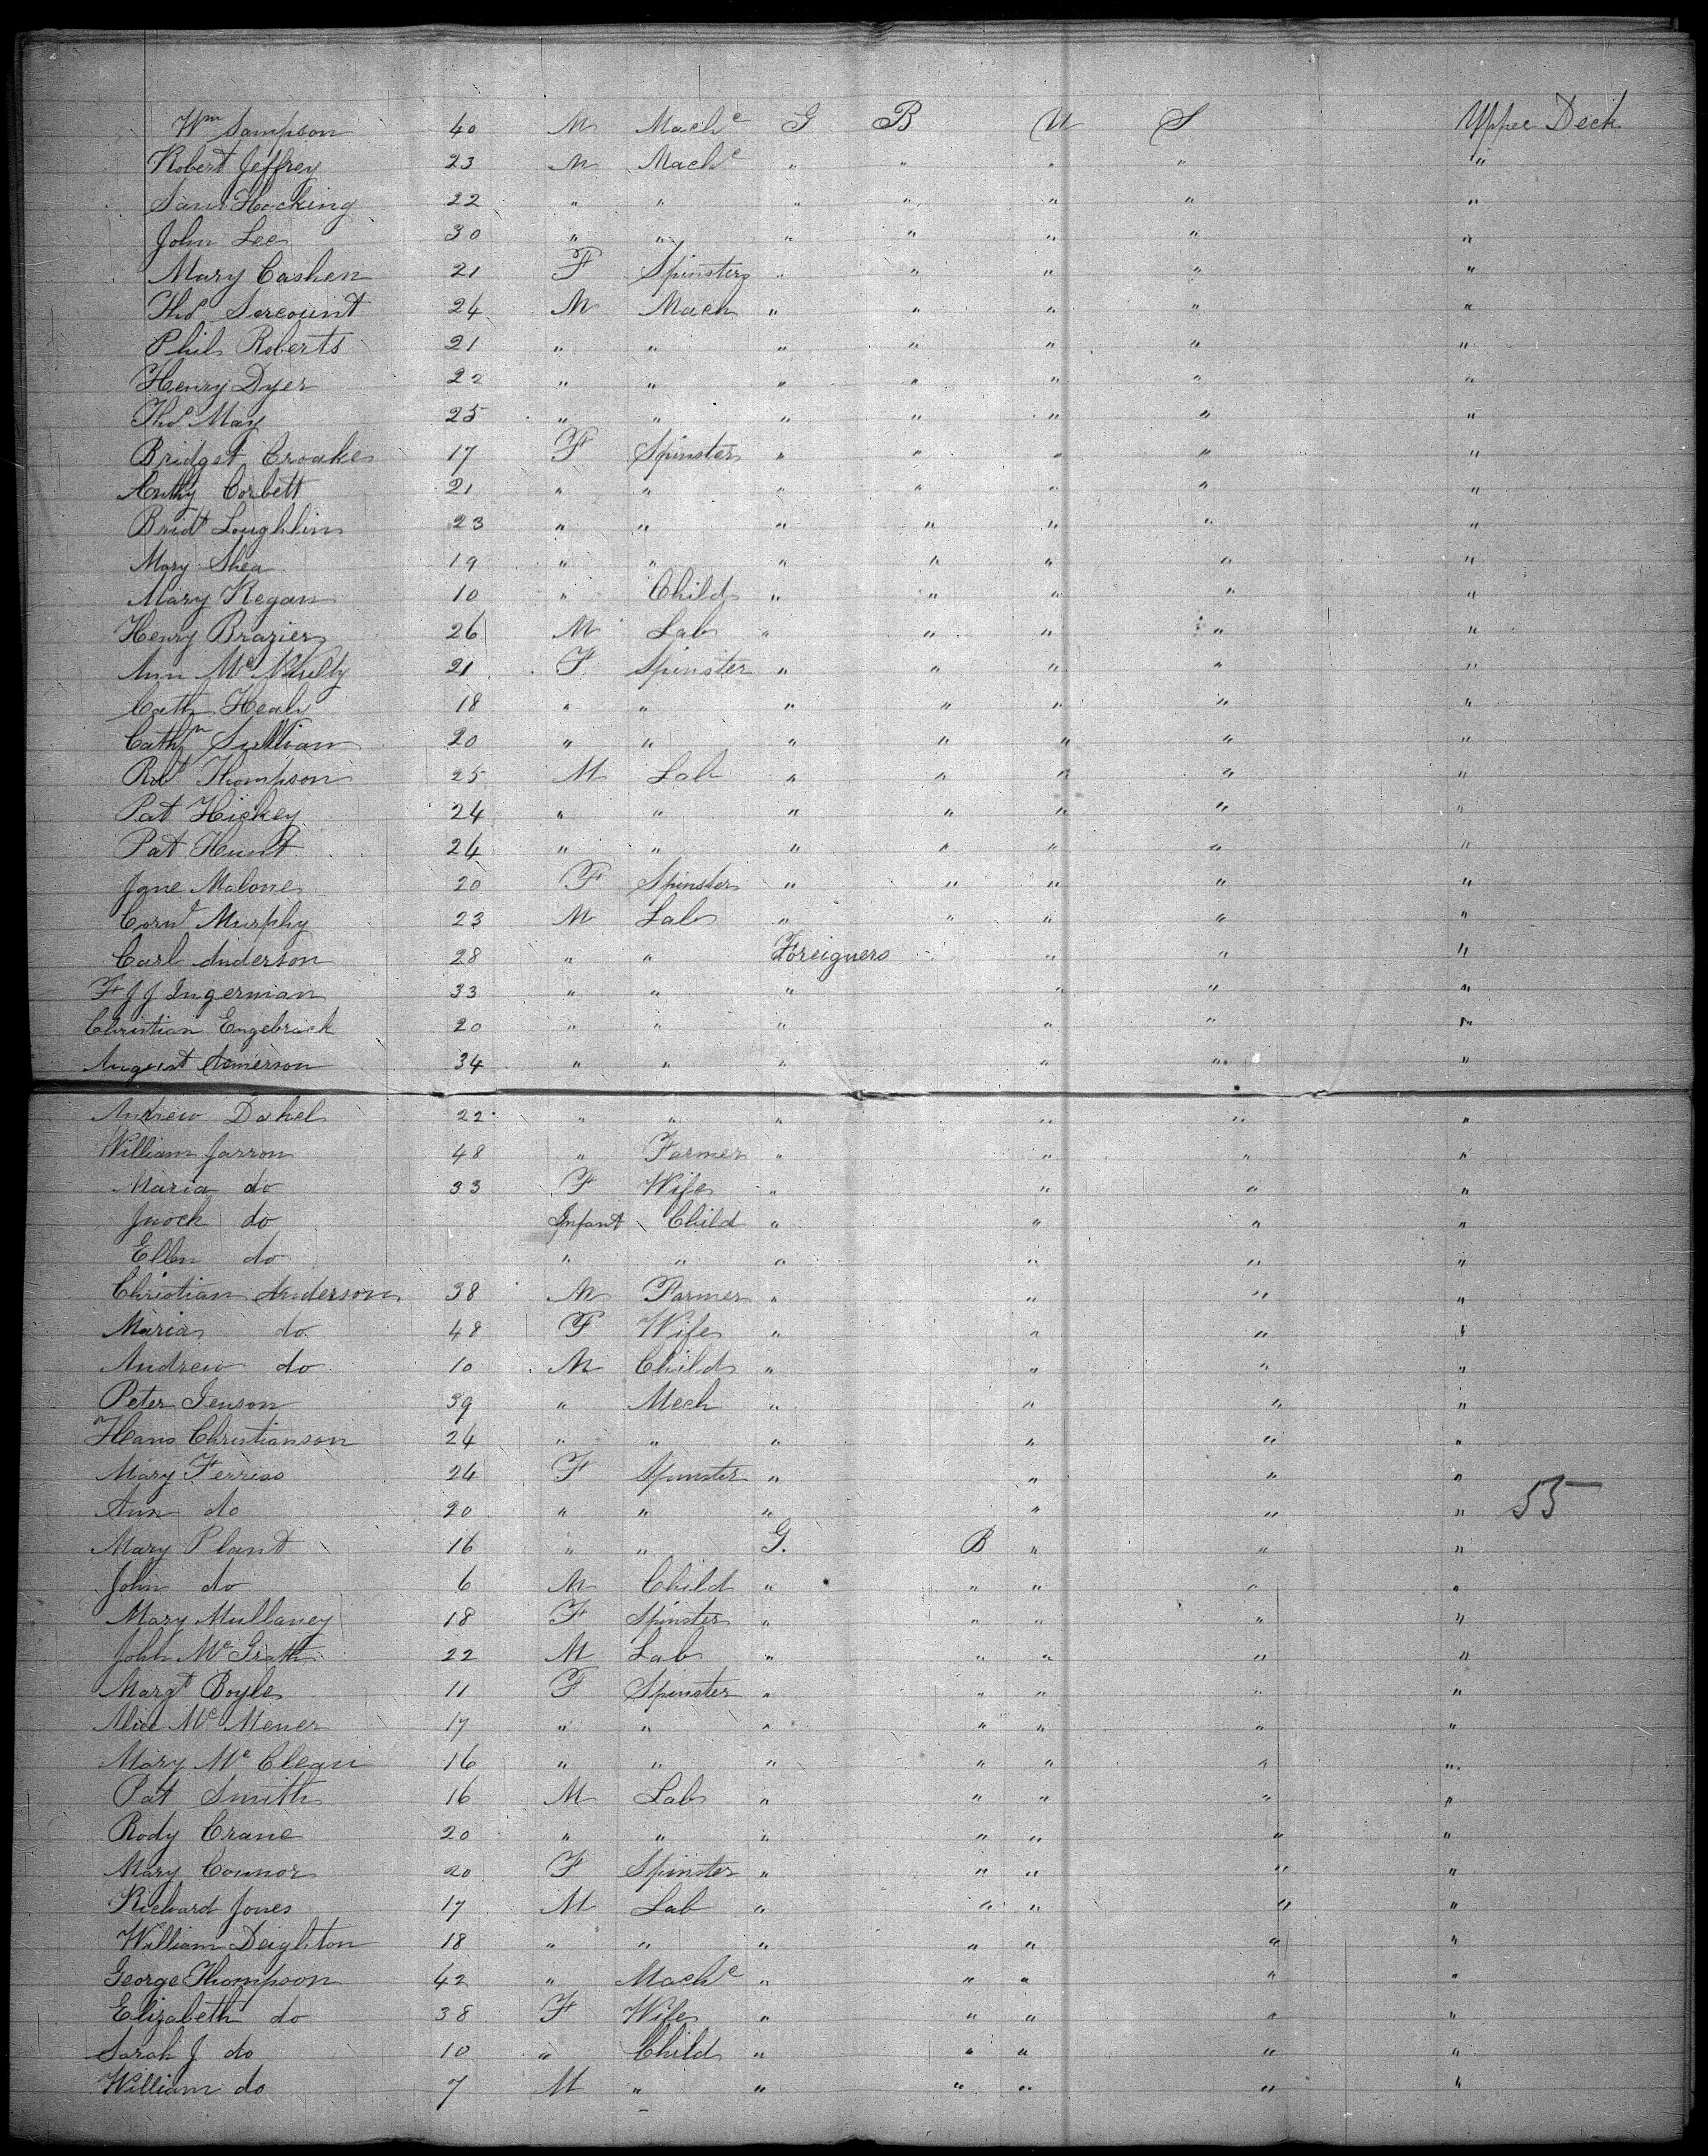 Wm Sampson 40 M Mache G B U S Upper Deck
Robert Jeffrey 23 M Mache " " " " "
Saml Hocking 22 " " " " " " "
John Lee 30 " " " " " " "
Mary Cashen 21 F Spinster " " " " "
Thos 24 M Mach " " " " "
Phil Roberts 21 " " " " " " "
Henry Dyer 22 " " " " " " "
Thos May 25 " " " " " " "
Bridget Croake 17 F Spinster " " " " "
Cathy Corbett 21 " " " " " " "
Bridt Loughlin 23 " " " " " " "
Mary Shea 19 " " " " " " "
Mary Regan 10 " Child " " " " "
Henry Brazier 26 M Lab " " " " "
Ann McNulty 21 F Spinster " " " " "
Cath Healy 18 " " " " " " "
Cathn Sullivan 20 " " " " " " "
Robt Thompson 25 M Lab " " " " "
Pat Hickey 24 " " " " " " "
Pat Hunt 24 " " " " " " "
Jane Malone 20 F Spinster " " " " "
Cornl Murphy 23 M Lab " " " " "
Carl Anderson 28 " " Foreigners " " "
F J J Ingerman 33 " " " " " "
Christian Engebrick 20 " " " " " "
August 34 " " " " " "
Andrew Dahel 22 " " " " " "
William Jarron 48 " Farmer " " " "
Maria do 33 F Wife " " " "
do Infant Child " " " "
Ellen do " " " " " "
Christian Anderson 38 M Farmer " " " "
Maria do 48 F Wife " " " "
Andrew do 10 M Child " " " "
Peter Jenson 39 " Mech " " " "
Hans Christianson 24 " " " " " "
Mary Ferriss 24 F Spinster " " " "
Ann do 20 " " " " " " 55
Mary Plant 16 " " G. B " " "
John do 6 M Child " " " " "
Mary Mullaney 18 F Spinster " " " " "
John McGrath 22 M Lab " " " " "
Margt Boyle 11 F Spinster " " " " "
Alice McMener 17 " " " " " " "
Mary McClean 16 " " " " " " "
Pat Smith 16 M Lab " " " " "
Rody Crane 20 " " " " " " "
Mary Connor 20 F Spinster " " " " "
Richard Jones 17 M Lab " " " " "
William Deighton 18 " " " " " " "
George Thompson 42 " Mache " " " " "
Elizabeth do 38 F Wife " " " " "
Sarah J do 10 " Child " " " " "
William do 7 M " " " " " "